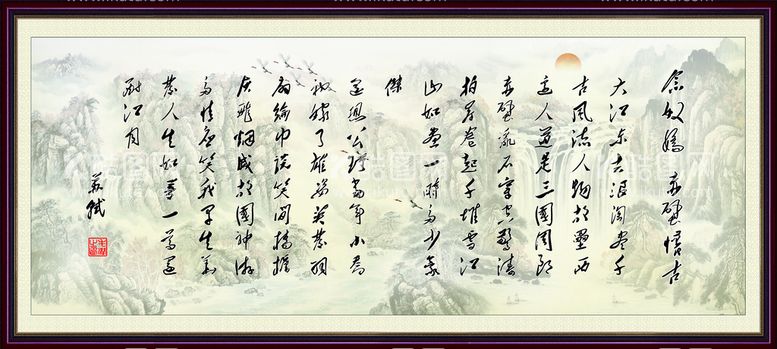 念奴嬌 赤壁懷古
大江东去浪淘尽千
古風流人物故壘西
边人道是三國周郎
赤壁乱石穿空驚濤
拍岸卷起千堆雪江
山如画一時多少豪
傑
遥想公瑾當年小喬
初嫁了雄姿英發羽
扇綸巾談笑間檣櫓
灰飛烟滅故國神游
多情应笑我早生華
發人生如夢一尊還
酹江月
蘇軾